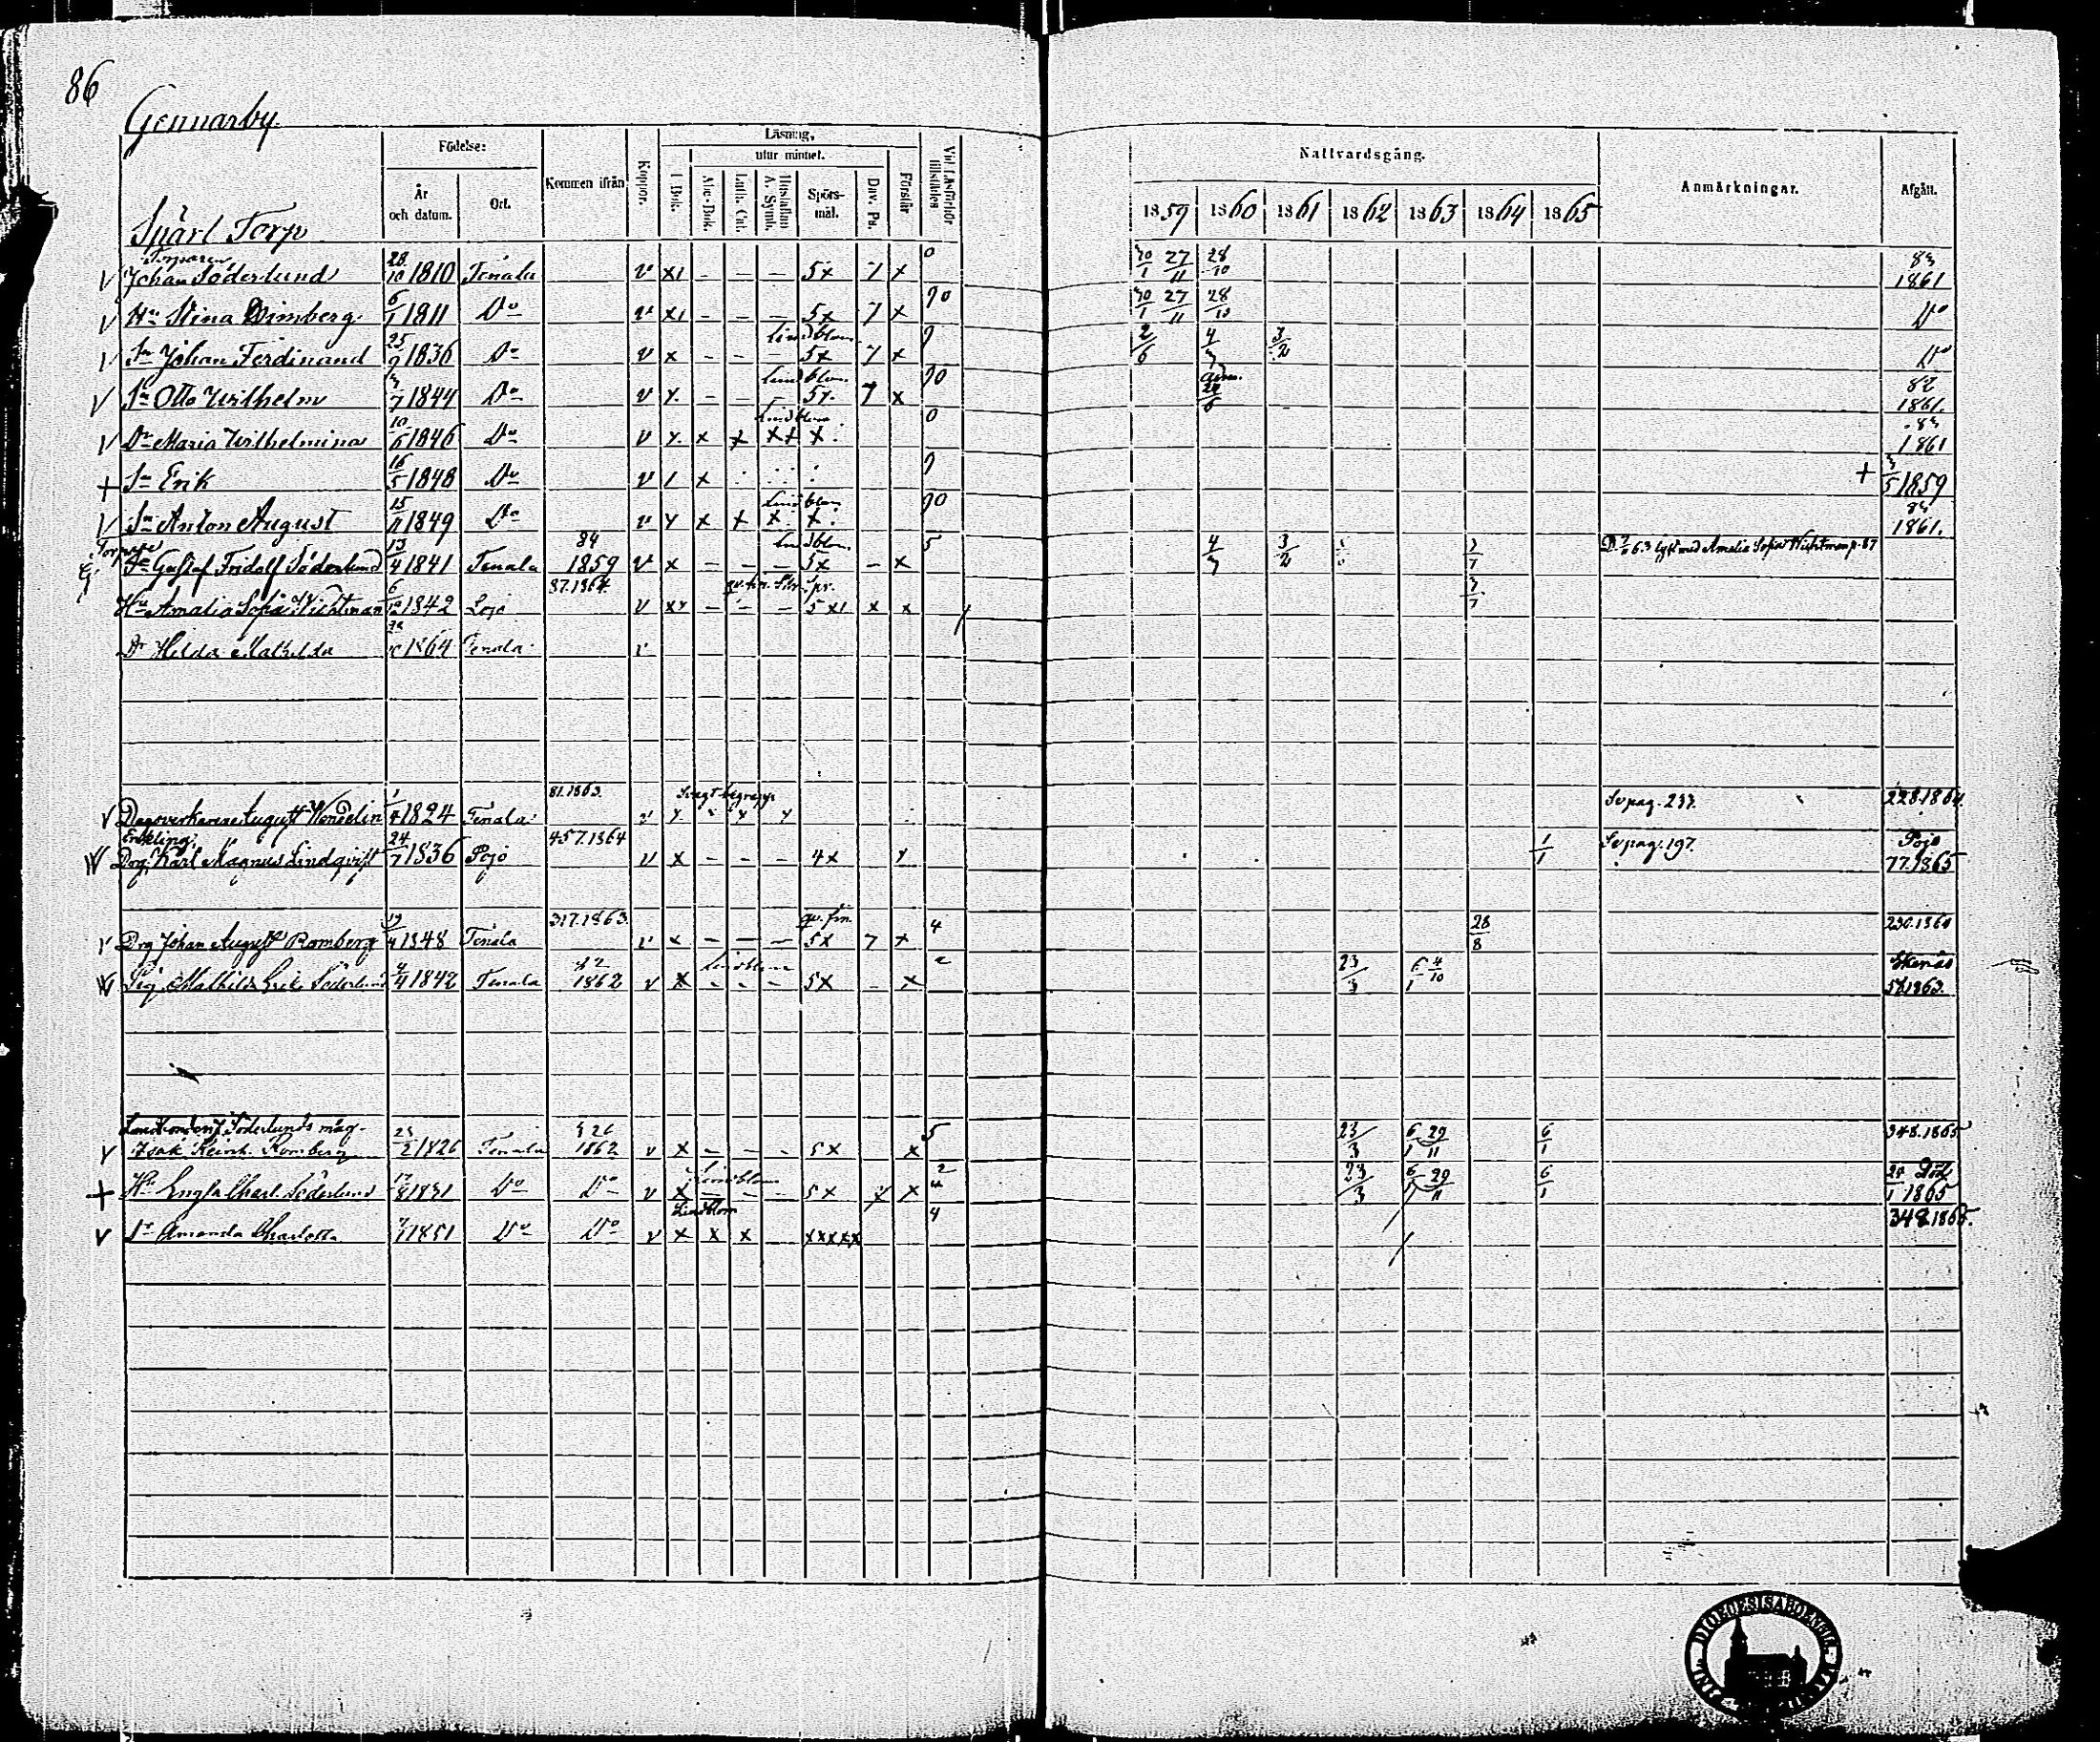 86
Gennarby
Födelse: Kommen ifrån Koppor. Läsning. Vid Läsförhör tillstädes Nattvardsgång. Anmärkningar. Afgått.
utur minnet.
År och datum. Ort. I Bok. Abc-Bok. Luth. Cat. Hustaflan A. Symb. Spörsmål. Dav. Ps. Förstår
1859 1860 1861 1862 1863 1864 1865
Spärl Torp
Torparen
V Johan Söderlund 28/10 1810 Tenala v x1 – – – 5x 7 x 0 30/1 27/11 28/10 83 1861
V Hu Stina Wimberg 6/1 1811 Do v x1 – – – 5x 7 x 90 30/1 27/11 28/10 Do
Lindblom
V Sn Johan Ferdinand 25/9 1836 Do v x – – – 5x 7 x 9 2/6 4/3 3/2 Do
Lindblom
V Sn Otto Wilhelm 3/7 1844 Do v x – – – 5x 7 x 90 adm. 24/6 82 1861.
Lindblom
V Dr Maria Wilhelmina 10/6 1846 Do v x x x xx x 0 83 1861
+ Sn Erik 16/5 1848 Do v 1 x 9 + 3/5 1859
Lindblom
V Sn Anton August 15/11 1849 Do v x x x x x 90 83 1861.
Torpare
Sn Gustaf Fridolf Söderlund 13/4 1841 Tenala 84 1859 v x – – – 5x – x 5 4/3 3/2 3/7 lyst med Amalia Sofia Wichtman p. 87
Hu Amalia Sofia Wichtman 6/12 1842 Lojo 87.1864. v xx – – – 5x1 x x 3/7
Dr Hilda Mathilda 1864 Tenala v
Svagt begrepp
V Dagsverkaren August Wendelin 1/4 1824 Tenala 81.1863. v x x x Se pag. 233. 228.1864
Enkling
Drg. Karl Magnus Lindqvist 24/7 1836 Pojo 457.1864 v x – – – 4x x 1/1 Se pag. 197. Pojo 77.1865
V Drg Johan August Romberg 19/4 1848 Tenala 317.1863. v x – – – qv. fin. 5x 7 x 4 28/8 230.1864
Lindblom
Pig. Mathilda Erik. Söderlund 4/4 1842 Tenala 1862 v x – – – 5x – x 2 23/3 6/1 4/10 Ekenäs 52.1863.
Söderlunds måg
V Isak Reinh. Romberg 23/2 1826 Tenala 1862 v x – – – 5x x 5 23/3 6/1 29/11 6/1 348.1865
Lindblom
+ Hu Engla Charl. Söderlund 17/8 1831 Do Do v x – – – 5x x x 23/3 6/1 29/11 6/1 24/1 Död 1865
Lindblom
V Dr Amanda Charlotta 1851 Do Do v x x x – xxxxx 4 348.1865.